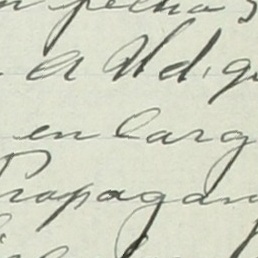 fecha
a Vd. q
en larg
Propagan